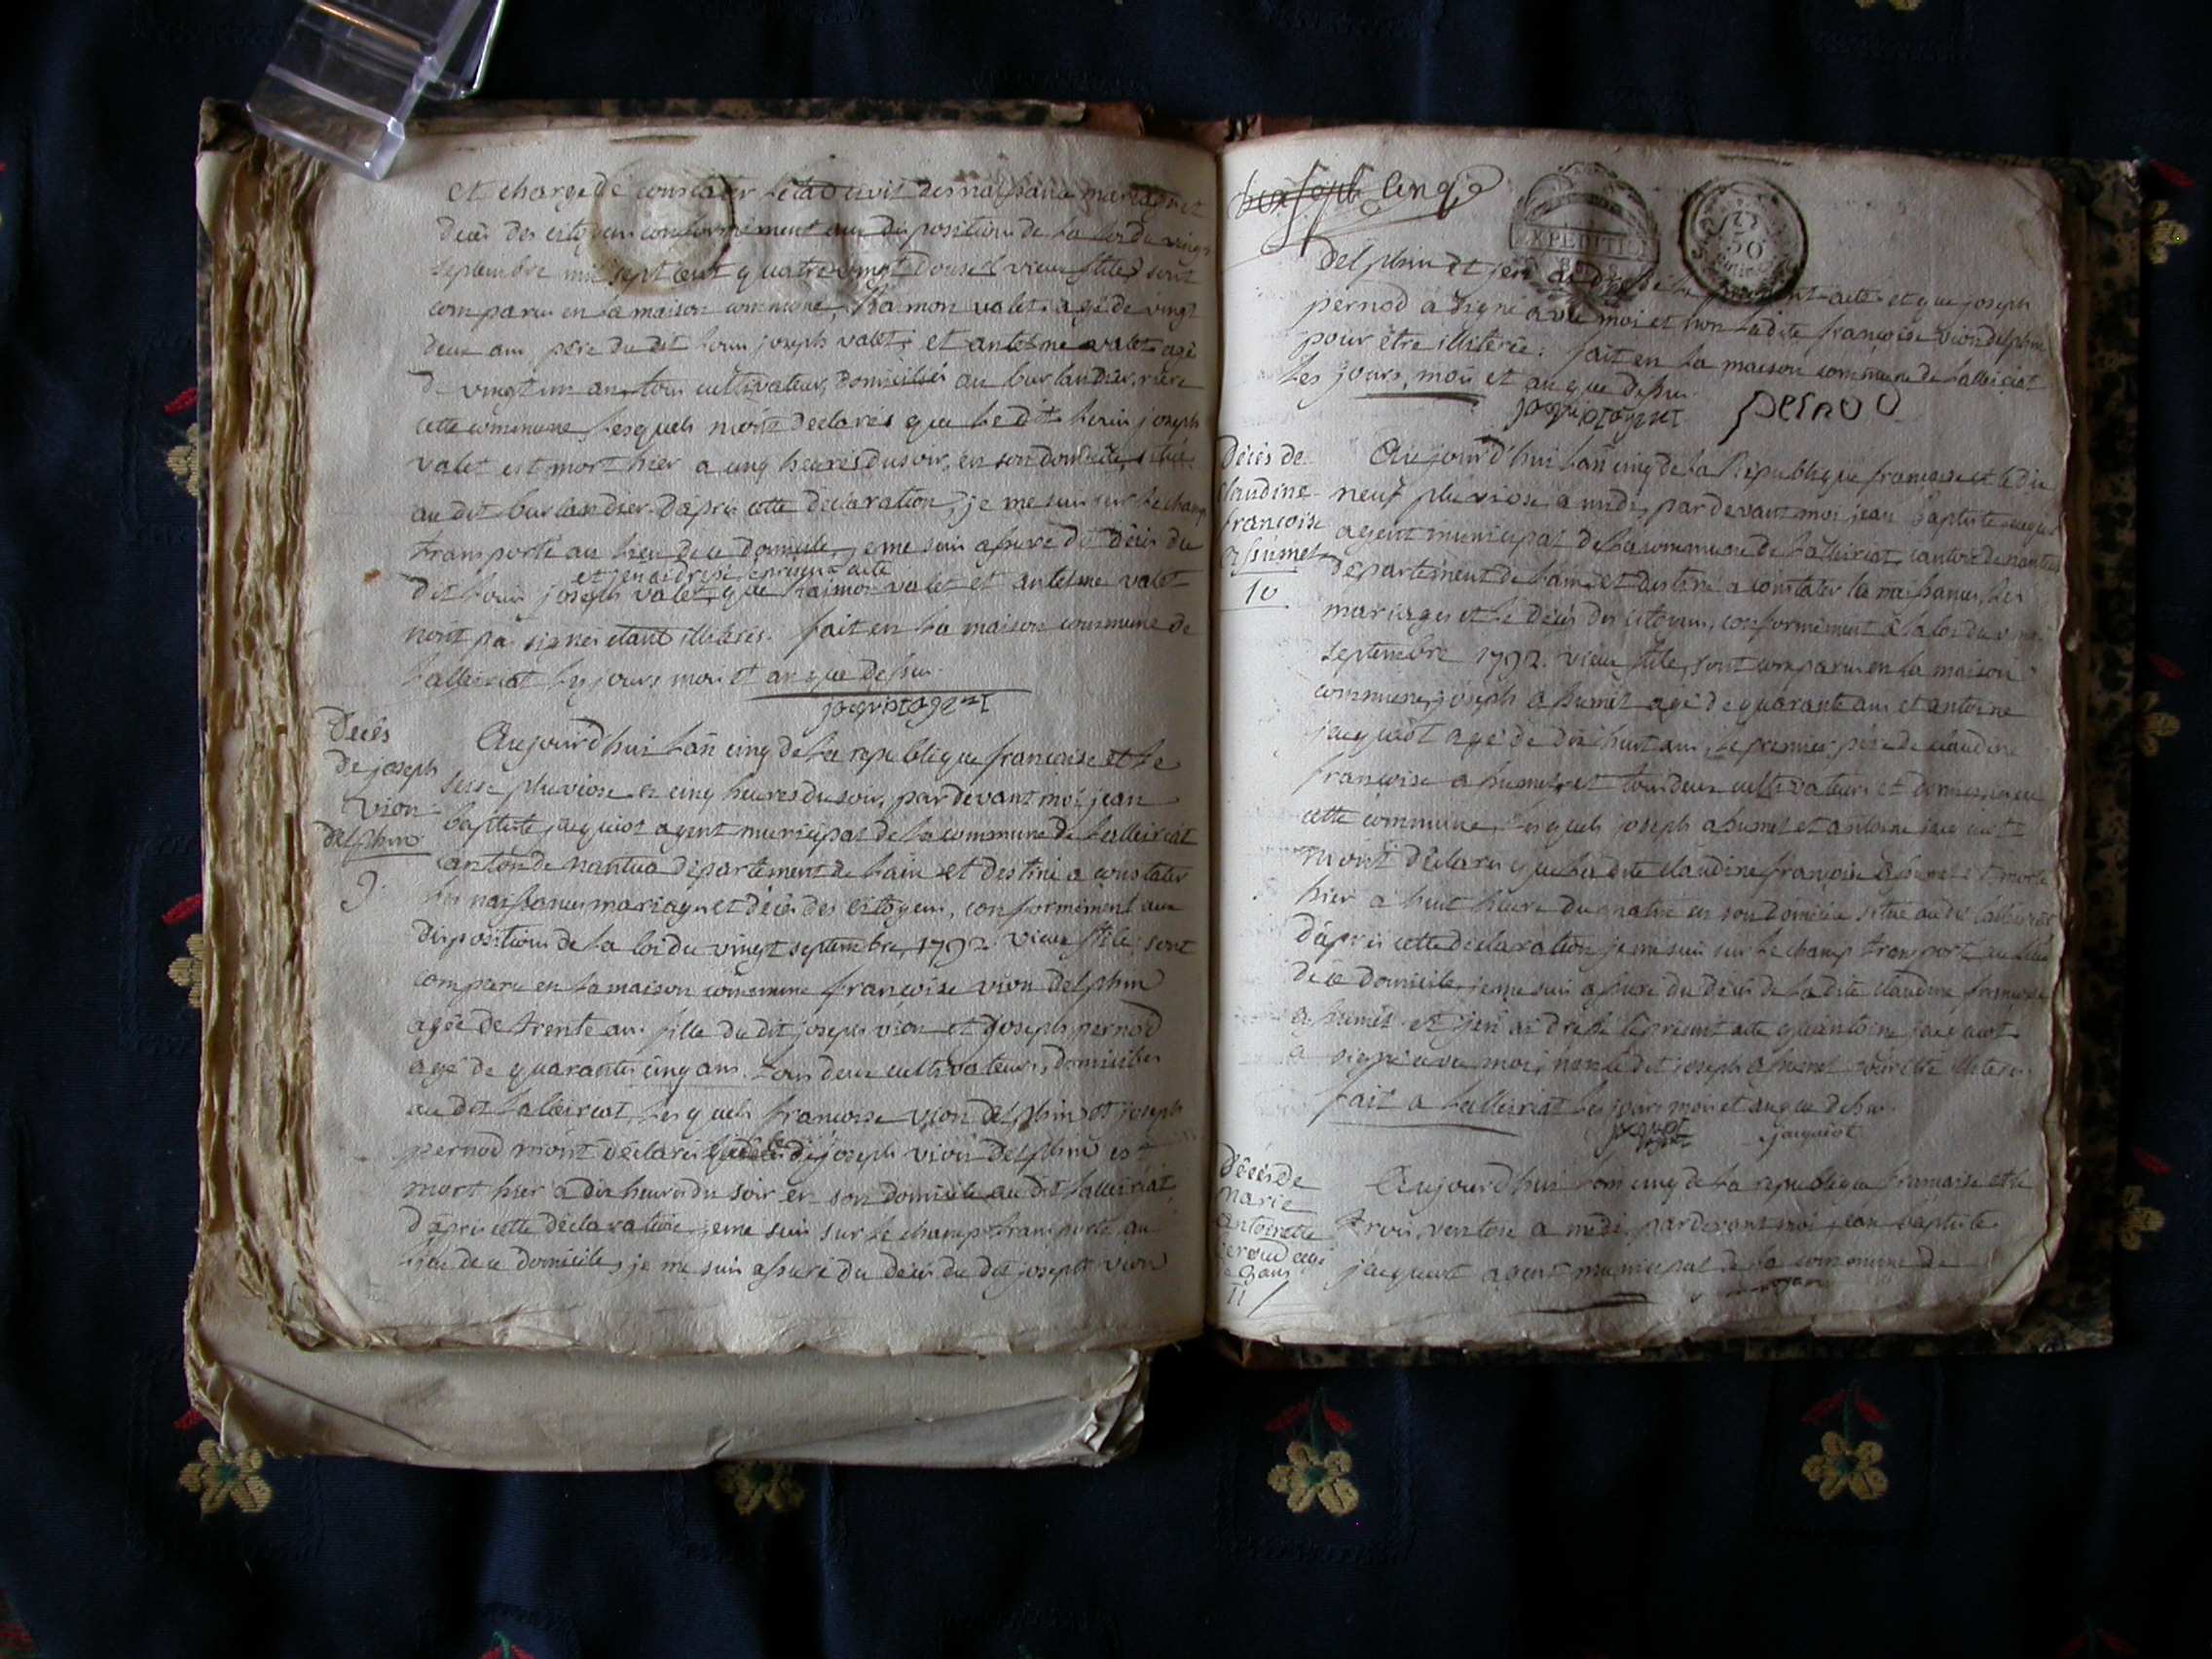 et chargé de constater l'etat civil des naissance mariages et
deces des citoyens conformement aux dispositions de la loi du vingt
septembre mil sept cent quatre vingt douse (vieux stile) sont
comparus en la maison commune, Raimon valet agé de vingt
deux ans pere du dit louis joseph valet et antelme valet agé
de vingt un an, tous cultivateurs, domiciliés au burlandier, rière
cette commune, lesquels m'ont declarés que le dit louis joseph
valet est mort hier a cinq heures du soir, en son domicile, situé
au dit burlandier. d'apres cette declaration, je me suis sur le champ
transporté au lieu de ce domicile, je me suis assuré du décès du
et j'en ai dressé le present acte
dit louis joseph valet, que Raimon valet et antelme valet
n'ont pas signés etant illiterés. fait en la maison commune de
Lalleiriat les jours mois et an que dessus.
jacquiot agent
Décès
de joseph
vion
delphin
9
Aujourd'hui l'an cinq de la republique francoise et le
seise pluviose a cinq heures du soir, pardevant moi jean
baptiste jacquiot agent municipal de la commune de Lalleiriat
canton de nantua departement de l'ain et destiné a constater
les naissances mariages et décès des citoyens, conformément aux
dispositions de la loi du vingt septembre 1792 vieux stile; sont
comparu en la maison commune francoise vion delphin
agée de trente ans fille du dit joseph vion et joseph pernod
agé de quarante cinq ans tous deux cultivateurs, domiciliés
au dit Lalleiriat, lesquels francoise vion delphin et joseph
pernod m'ont déclarés que le dit joseph vion delphin est
mort hier a dix heures du soir en son domicile au dit Lalleiriat
d'apres cette déclaration je me suis sur le champ transporté au
lieu de ce domicile, je me suis assuré du décès du dit joseph vion
cinq
EXPEDITION
delphin et j'en ai dressé le present acte et que joseph
pernod a signé avec moi et non ladite françoise vion delphin
pour être illiterée: fait en la maison commune de Lalleiriat
les jours, mois et an que dessus.
jacquiot agent pernod
Décès de
Claudine
francoise
assumel
10
Aujourd'hui l'an cinq de la République francoise et le dix
neuf pluviose, a midi, pardevant moi jean baptiste jacquiot
agent municipal de la commune de Lalleiriat canton de nantua
departement de l'ain et destiné a constater les naissances, les
mariages et le décès des citoyens, conformément a la loi du vingt
septembre 1792. vieux stile, sont comparu en la maison
commune, joseph assumel agé de quarante ans et antoine
jacquiot agé de dix huit ans, le premier pere de claudine
francoise assumel, et tous deux cultivateurs et domiciliés en
cette commune, lesquels joseph assumel et antoine jacquiot
m'ont déclarés que la dite claudine francoise assumel est morte
hier a huit heure du matin en son domicile situé au dit lalleiriat
d'après cette déclaration je me suis sur le champ transporté au lieu
de ce domicile, je me suis assuré du décès de la dite claudine francoise
assumel et j'en ai dressé le present acte qu'antoine jacquiot
a signé avec moi, non le dit joseph assumel pour être illiteré
fait a Lalleiriat les jours mois et an que dessus.
jacquiot agent jacquiot
Décès de
Marie
antoinette
11
Aujourd'hui l'an cinq de la republique francaise et le
trois ventose a midi, pardevant moi jean baptiste
jacquiot agent municipal de la commune de